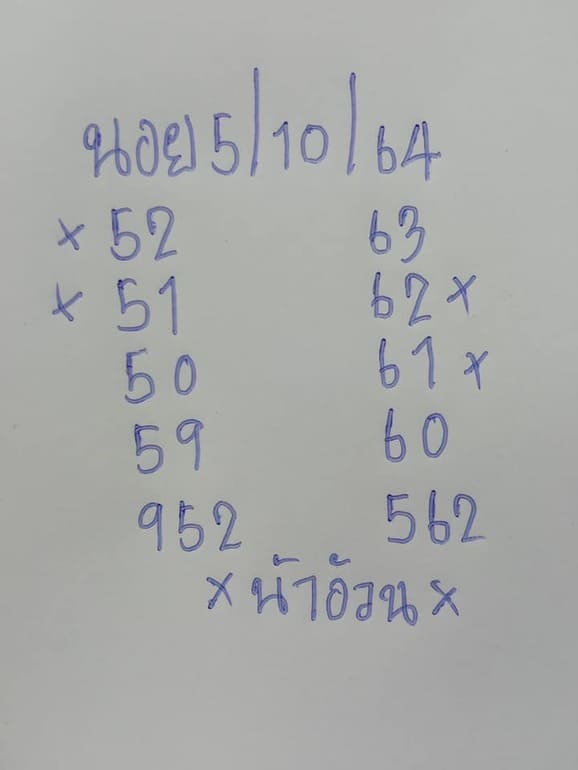 นอย 5/10/64
× 52 63
× 51 62 ×
50 61 ×
59 60
952 562
× น้าอ้วน ×